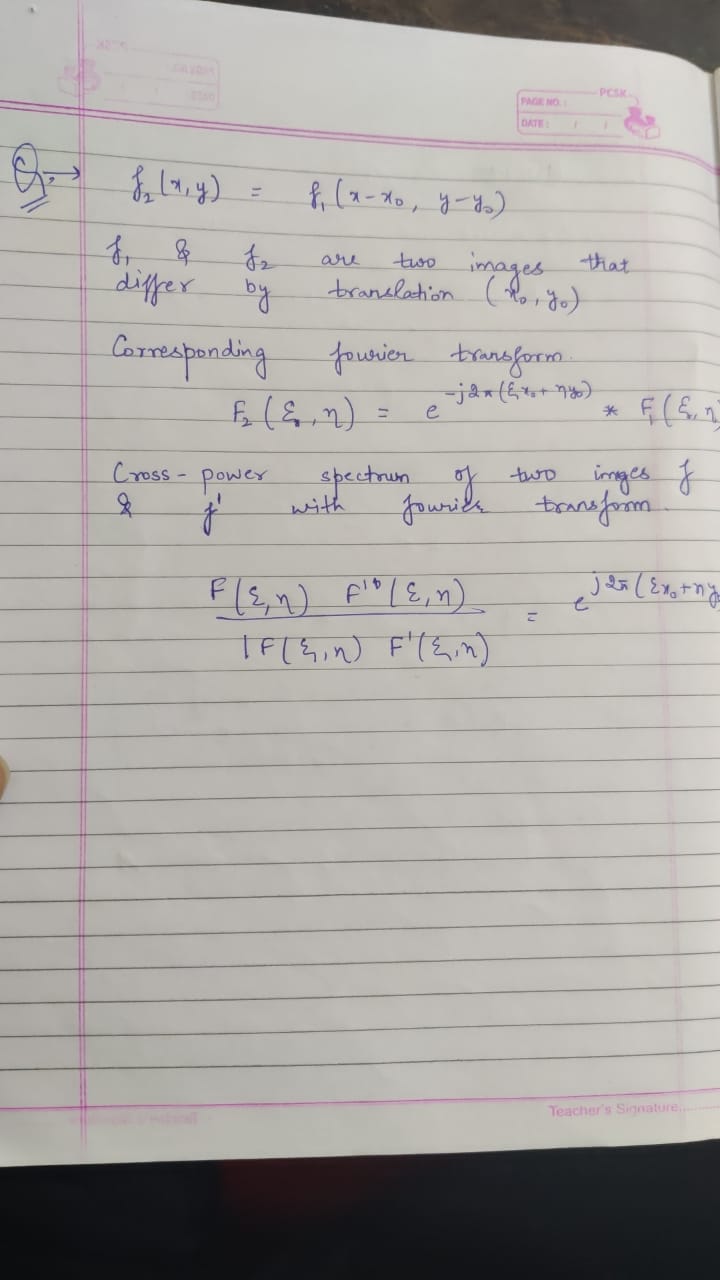 PCSK
PAGE NO.:
DATE: / /
Q. → f₂(x,y) = f₁(x-x₀, y-y₀)
f₁ & f₂ are two images that
differ by translation (x₀, y₀)
Corresponding fourier transform.
F₂(ξ,η) = e^{-j2π(ξx₀+ηy₀)} * F₁(ξ,η
Cross-power spectrum of two imges f
& f' with fourier transform.
F(ξ,η) F'*(ξ,η) = e^{j2π(ξx₀+ηy
|F(ξ,η) F'(ξ,η)
Teacher's Signature